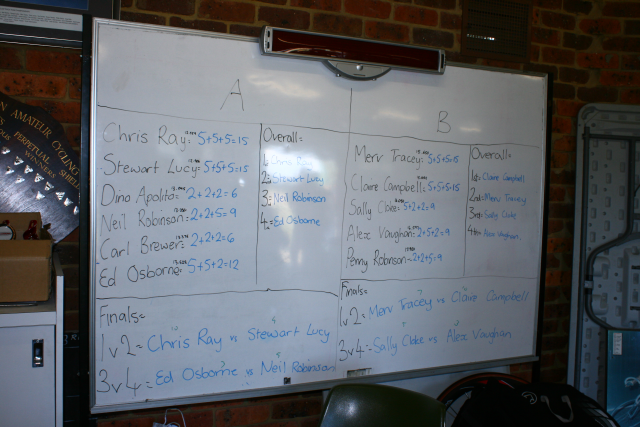 A
Chris Ray: 5+5+5=15
Stewart Lucy: 5+5+5=15
Dino Apolito: 2+2+2=6
Neil Robinson: 2+2+5=9
Carl Brewer: 2+2+2=6
Ed Osborne: 5+5+2=12
Overall=
1: Chris Ray
2: Stewart Lucy
3: Neil Robinson
4: Ed Osborne
Finals:
1v2= Chris Ray vs Stewart Lucy
3v4= Ed Osborne vs Neil Robinson
B
Merv Tracey: 5+5+5=15
Claire Campbell: 5+5+5=15
Sally Cloke: 5+2+2=9
Alex Vaughan: 2+5+2=9
Penny Robinson: 2+2+5=9
Overall=
1st: Claire Campbell
2nd: Merv Tracey
3rd: Sally Cloke
4th: Alex Vaughan.
Finals:
1v2= Merv Tracey vs Claire Campbell
3v4= Sally Cloke vs Alex Vaughan
AMATEUR CYCLING
PERPETUAL
WINNERS SHIELD